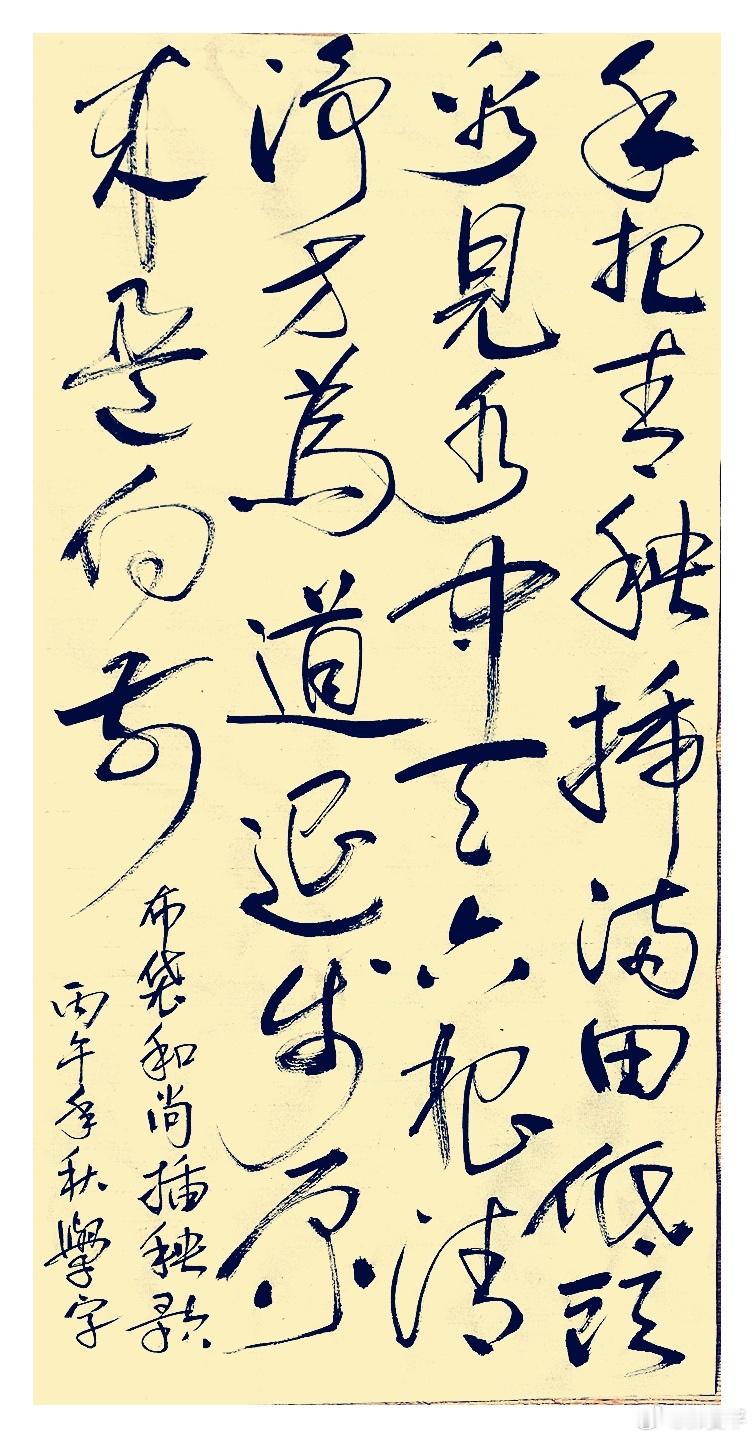 手把青秧插满田低頭
便見水中天六根清
淨方為道退步原
来是向前
布袋和尚插秧歌
丙午年秋學字